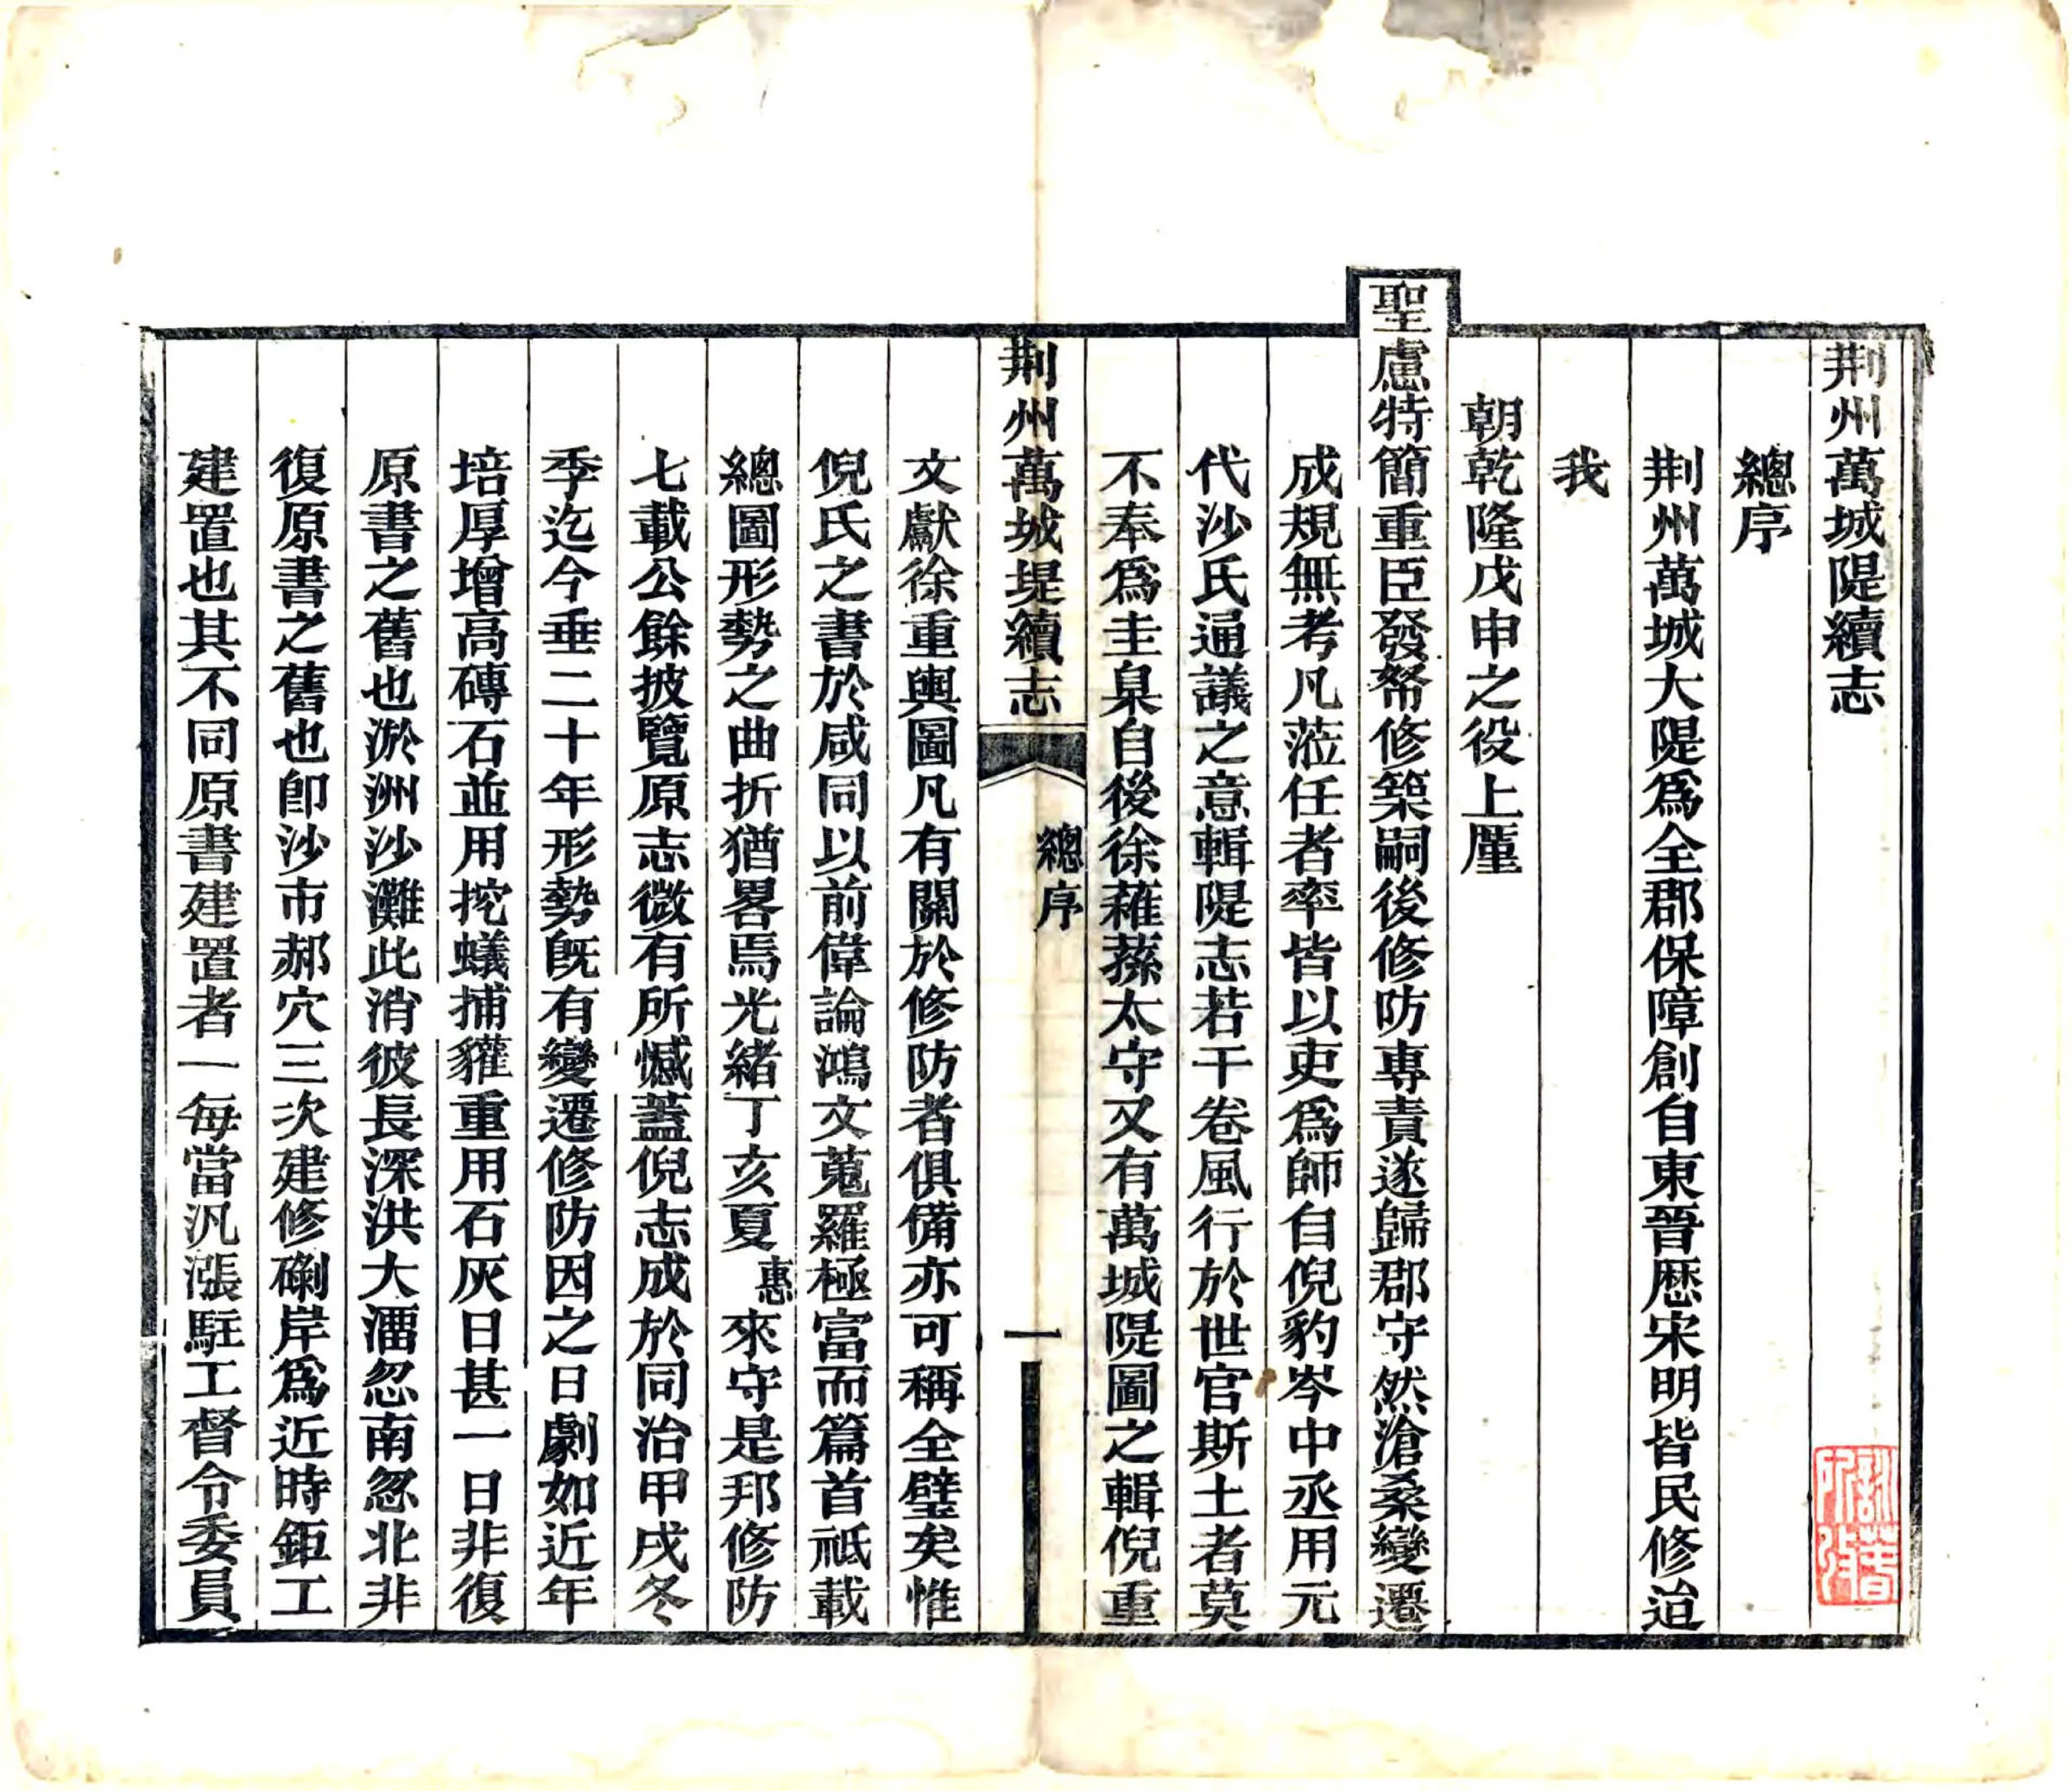 荆州萬城隄續志
總序
荆州萬城大隄爲全郡保障創自東晉歴宋明皆民修迨
我
朝乾隆戊申之役上厪
聖慮特簡重臣發帑修築嗣後修防專責遂歸郡守然滄桑變遷
成規無考凡蒞任者率皆以吏爲師自倪豹岑中丞用元
代沙氏通議之意輯隄志若干卷風行於世官斯土者莫
不奉爲圭臬自後徐蕥蓀太守又有萬城隄圖之輯倪重
荆州萬城堤續志
總序
一
文獻徐重輿圖凡有關於修防者俱備亦可稱全璧矣惟
倪氏之書於咸同以前偉論鴻文蒐羅極富而篇首祗載
總圖形勢之曲折猶畧焉光緒丁亥夏惠來守是邦修防
七載公餘披覽原志微有所憾蓋倪志成於同治甲戌冬
季迄今垂二十年形勢旣有變遷修防因之日劇如近年
培厚增高磚石並用挖蟻捕貛重用石灰日甚一日非復
原書之舊也淤洲沙灘此消彼長深洪大溜忽南忽北非
復原書之舊也卽沙市郝穴三次建修磡岸爲近時鉅工
建置也其不同原書建置者一每當汛漲駐工督令委員